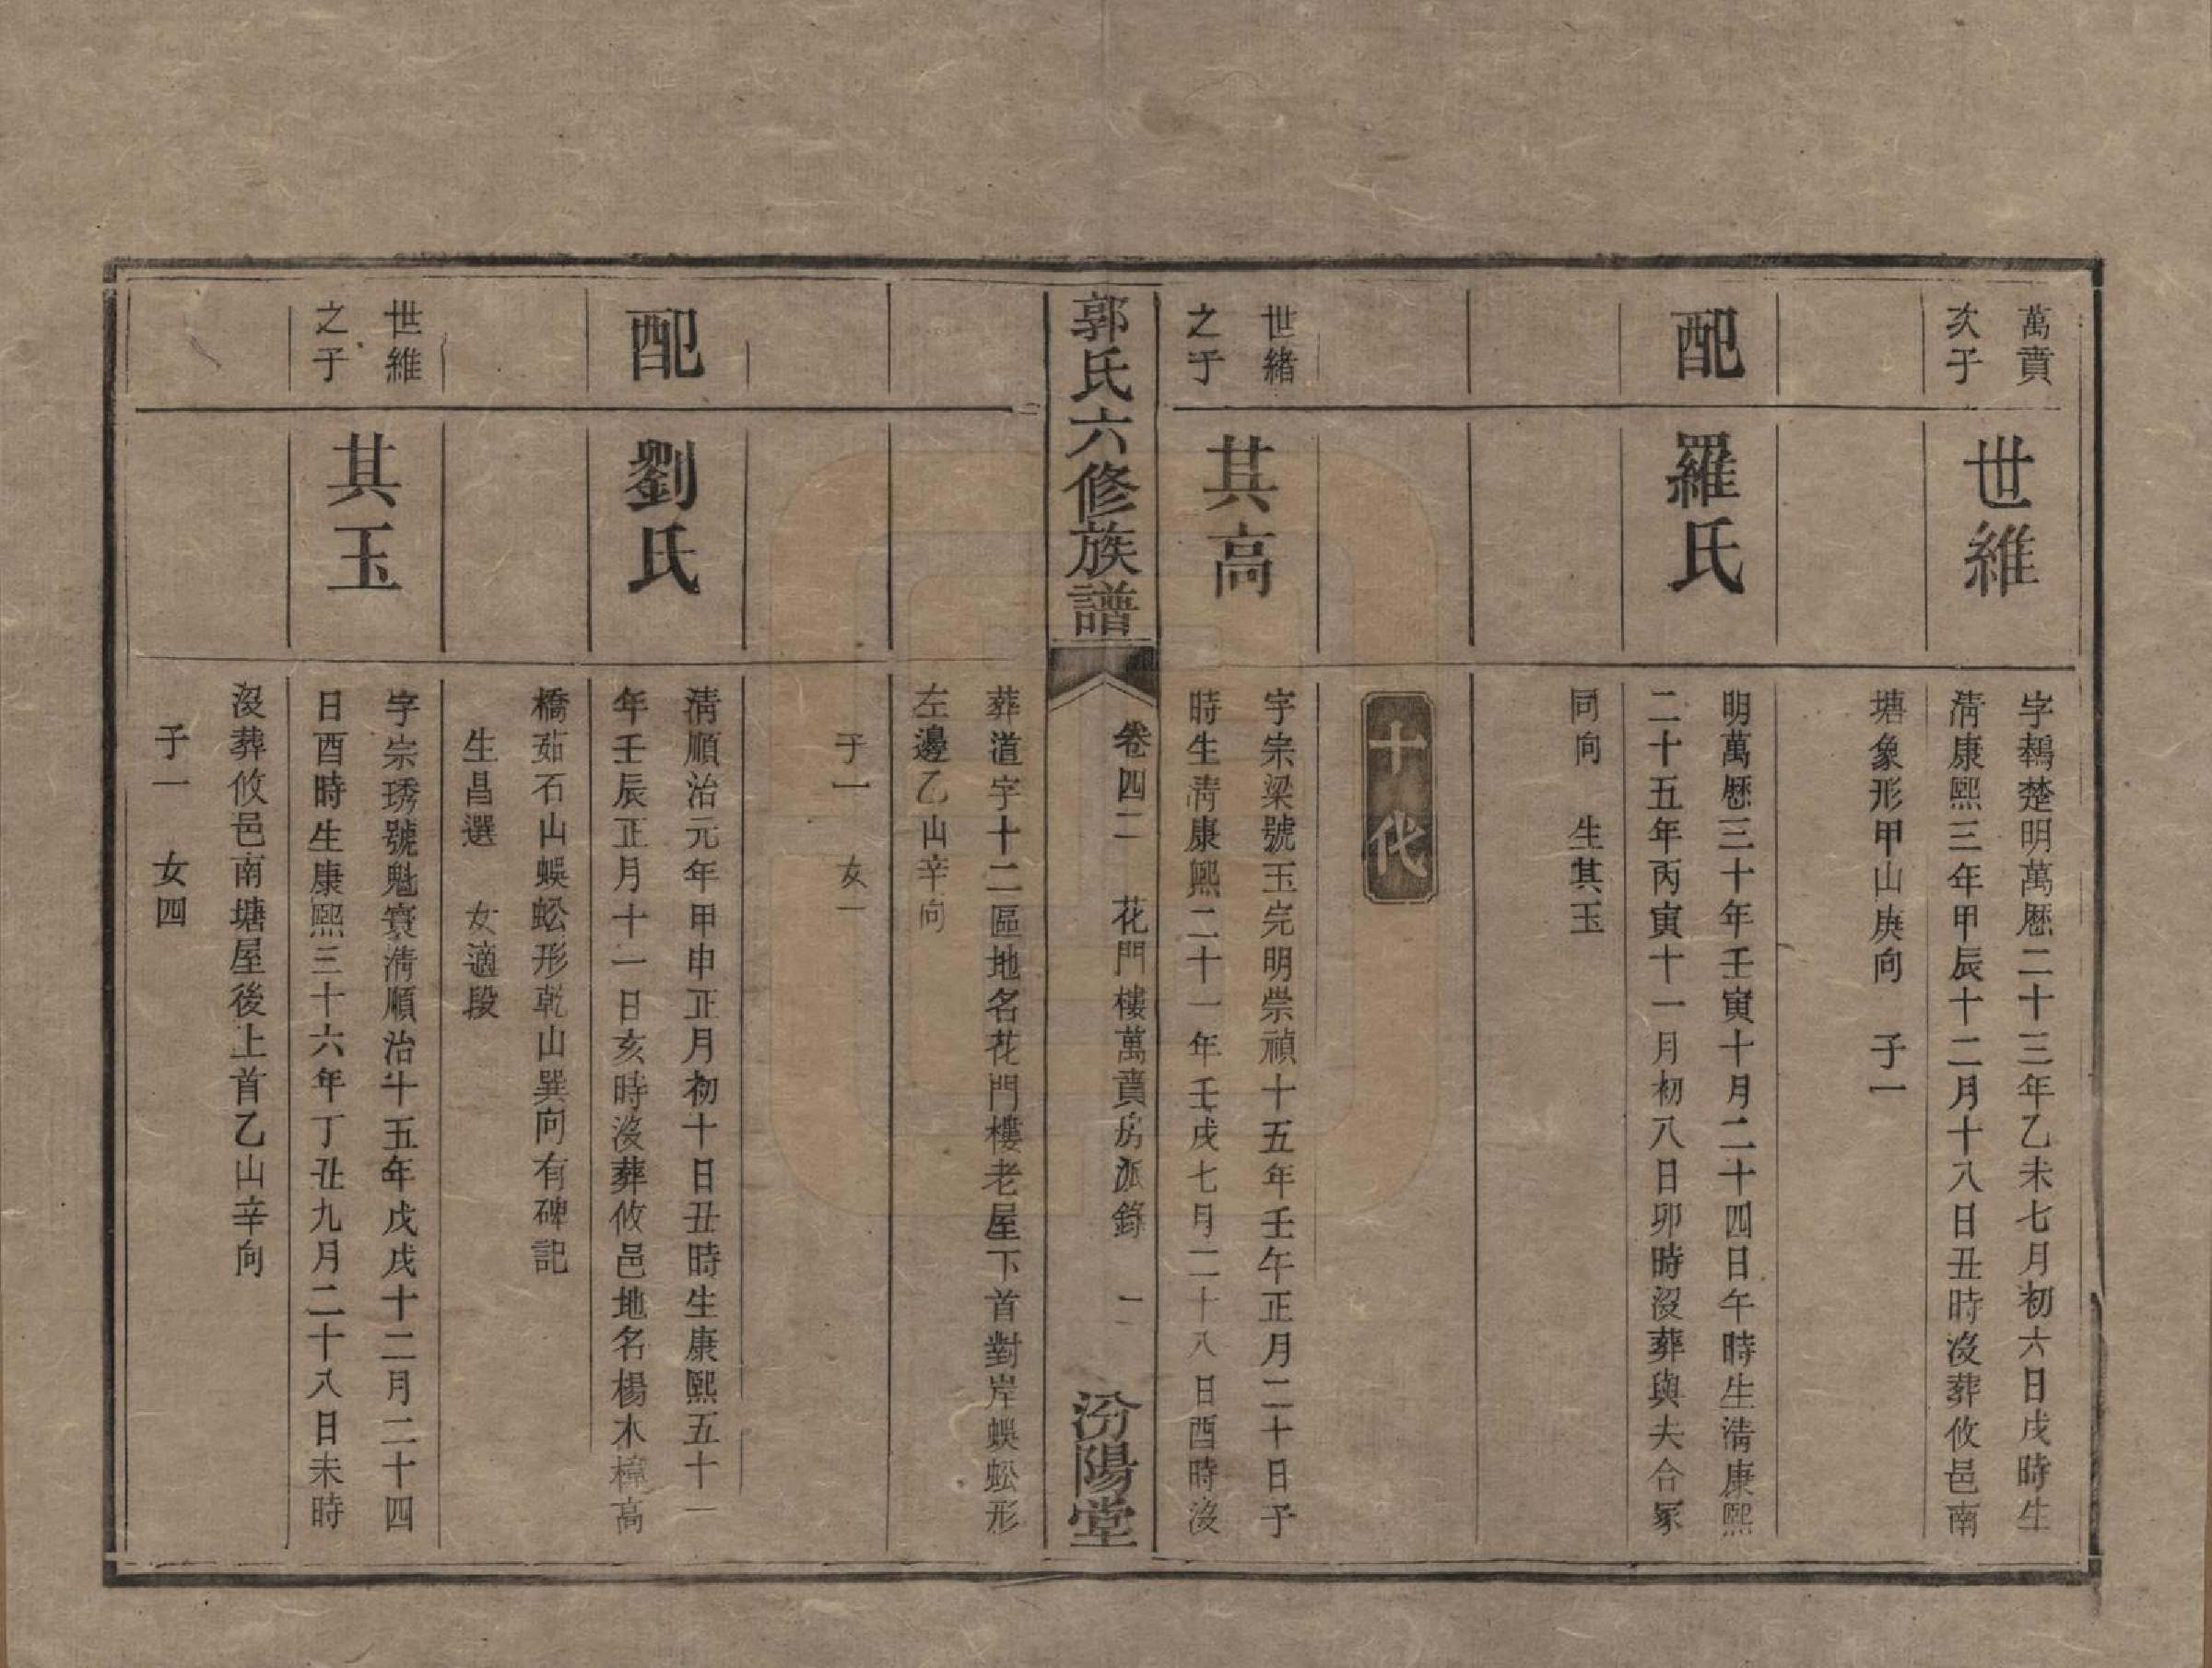 萬賁
次子
世維
字鶤楚明萬歷二十三年乙未七月初六日戌時生
清康熙三年甲辰十二月十八日丑時沒葬攸邑南
塘象形甲山庚向　子一
配
羅氏
明萬歷三十年壬寅十月二十四日午時生清康熙
二十五年丙寅十一月初八日卯時沒葬與夫合冢
同向　生其玉
十代
世緒
之子
其高
字宗梁號玉完明崇禎十五年壬午正月二十日子
時生清康熙二十一年壬戌七月二十八日酉時沒
郭氏六修族譜
卷四二　花門樓萬賁房派錄　一
汾陽堂
葬道字十二區地名花門樓老屋下首對岸蜈蚣形
左邊乙山辛向
子一　女一
配
劉氏
清順治元年甲申正月初十日丑時生康熙五十一
年壬辰正月十一日亥時沒葬攸邑地名楊木樟高
橋茹石山蜈蚣形乾山巽向有碑記
生昌選　女適段
世維
之子
其玉
字宗琇號魁寰清順治十五年戊戌十二月二十四
日酉時生康熙三十六年丁丑九月二十八日未時
沒葬攸邑南塘屋後上首乙山辛向
子一　女四